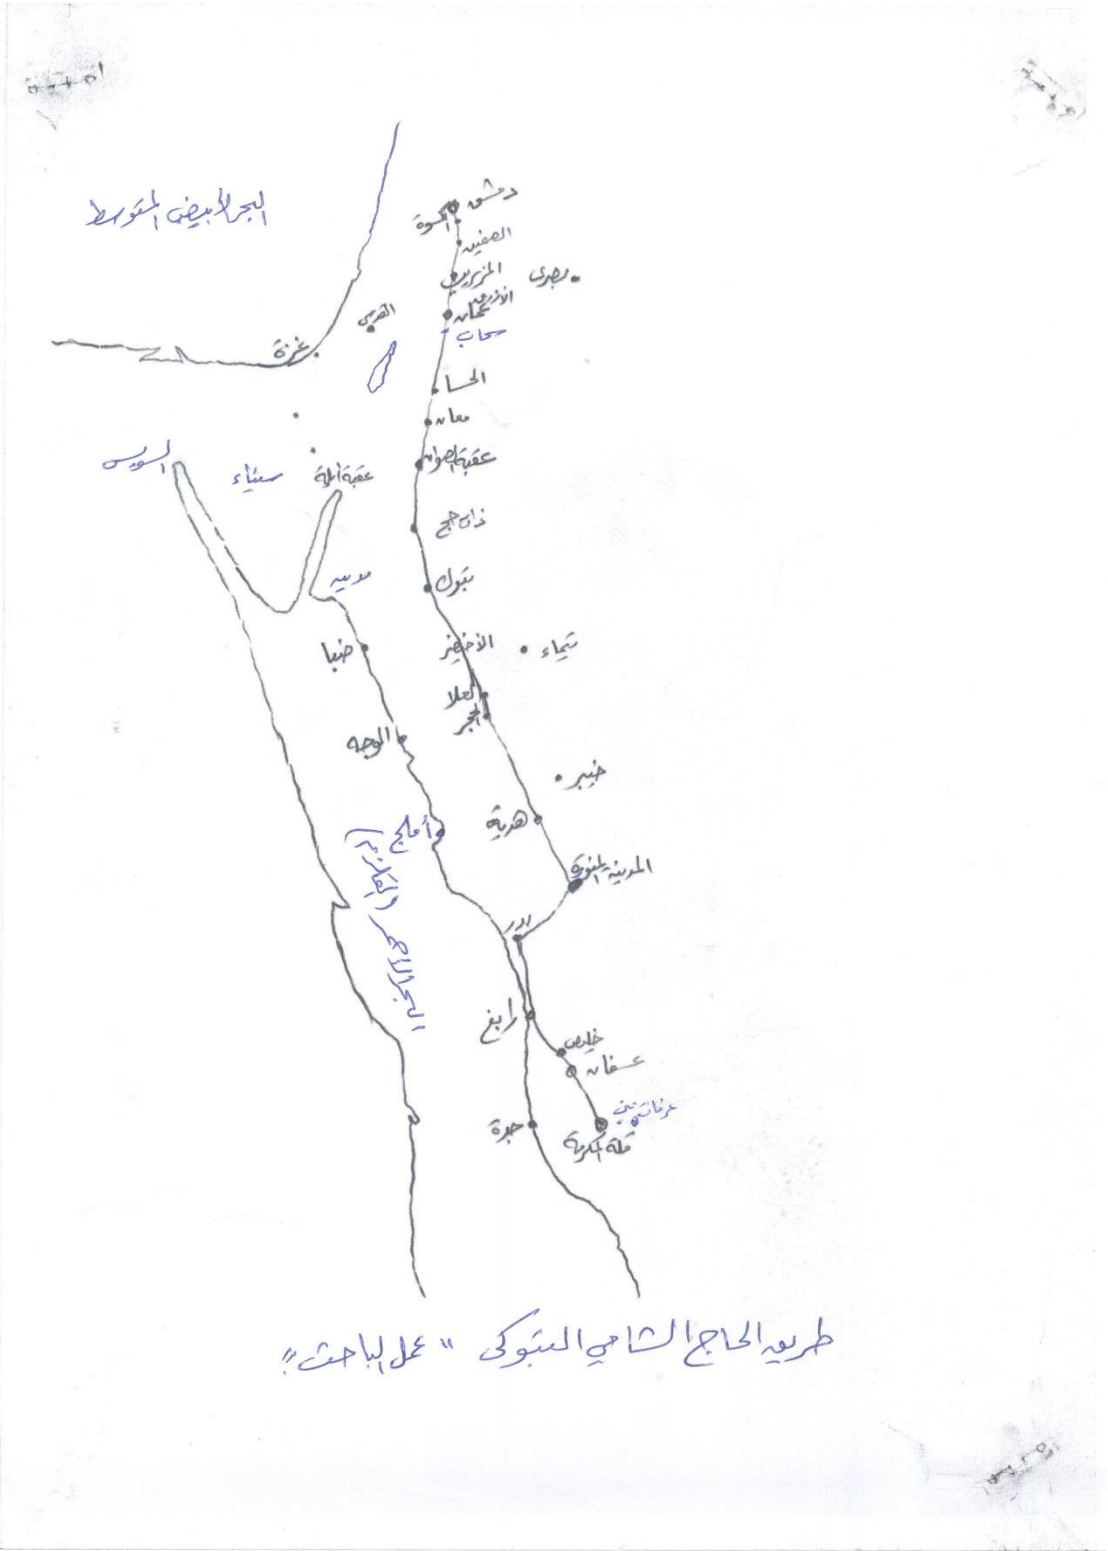 البحر الأبيض المتوسط
دمشق
الكسوة
الصنمين
المزيريب
بصرى
الأزرق
عمان
سحاب
القدس
غزة
الحسا
معان
عقبة الصوان
السويس
سيناء
عقبة أيلة
ذات حج
تبوك
مدين
ضبا
الأخيضر
تيماء
العلا
الحجر
الوجه
خيبر
هدية
أملج
البحر الأحمر (القلزم)
المدينة المنورة
بدر
رابغ
خليص
عسفان
عرفات
منى
جدة
مكة المكرمة
طريق الحاج الشامي التبوكي "عمل الباحث"